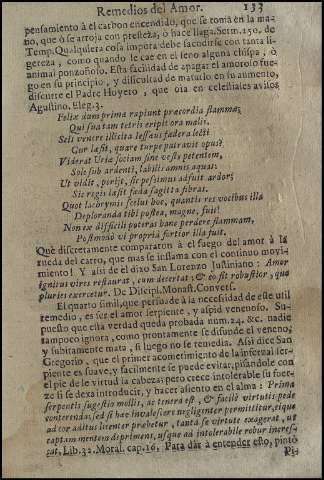 Remedios del Amor. 133
pensamiento à el carbon encendido, que se toma en la ma-
no, que ò se arroja con presteza, ò hace llaga. Serm. 150. de
Temp. Qualquiera cosa impura debe sacudirse con tanta li-
gereza, como quando le cae en el seno alguna chispa, ò
animal ponzoñoso. Esta facilidad de apagar el amoroso fue-
go en su principio, y dificultad de matarlo en su aumento,
discurre el Padre Hoyero, que oìa en celestiales avisos
Agustino. Eleg. 3.
Felix dum prima rapiunt præcordia flammæ,
Qui sua tam tetris eripit ora malis.
Seli venere illicita
Cur læsit, quare turpe putavit opus?
Viderat Uria sociam sine veste petentem,
Sole sub ardenti, labilis amnis aquas:
Ut vidit, periit, sic pessimus adfuit ardor;
Sic regis læsit fœda sagitta fibras.
Quot lacrymis scelus hoc, quantis res vocibus illa
Deploranda tibi postea, magne, fuit!
Non ex difficili poteras bane perdere flammam,
Postmodò vi propria fortior illa fuit.
Què discretamente compararon à el fuego del amor à la
rueda del carro, que mas se inflama con el continuo movi-
miento! Y assi de el dixo San Lorenzo Justiniano: Amor
ignitus vires restaurat, cum decertat; & eò fit robustior, quo
pluries exercetur. De Discipl. Monast. Convers.
El quarto simil, que persuade à la necesidad de este util
remedio, es ser el amor serpiente, y aspid venenoso. Su-
puesto que esta verdad queda probada num. 24. &c. nadie
tampoco ignora, como prontamente se difunde el veneno,
y subitamente mata, si luego no se remedia. Assi dice San
Gregorio, que el primer acometimiento de la infernal ser-
piente es suave, y facilmente se puede evitar, pisandole con
el pie de la virtud la cabeza; pero crece intolerable su fuer-
za si se dexa introducir, y hacer asiento en el alma: Prima
serpentis sugestio mollis, ac tenera est, & facilè virtutis pede
conterenda; sed si hæc invalescere negligenter permittitur, eique
ad cor aditus licenter præbetur, tanta se virtute exagerat, ut
captam mentem deprimens, usque ad intolerabile robur incres-
cat. Lib. 32. Moral. cap. 16. Para dàr à entender esto, pintò
Pi-